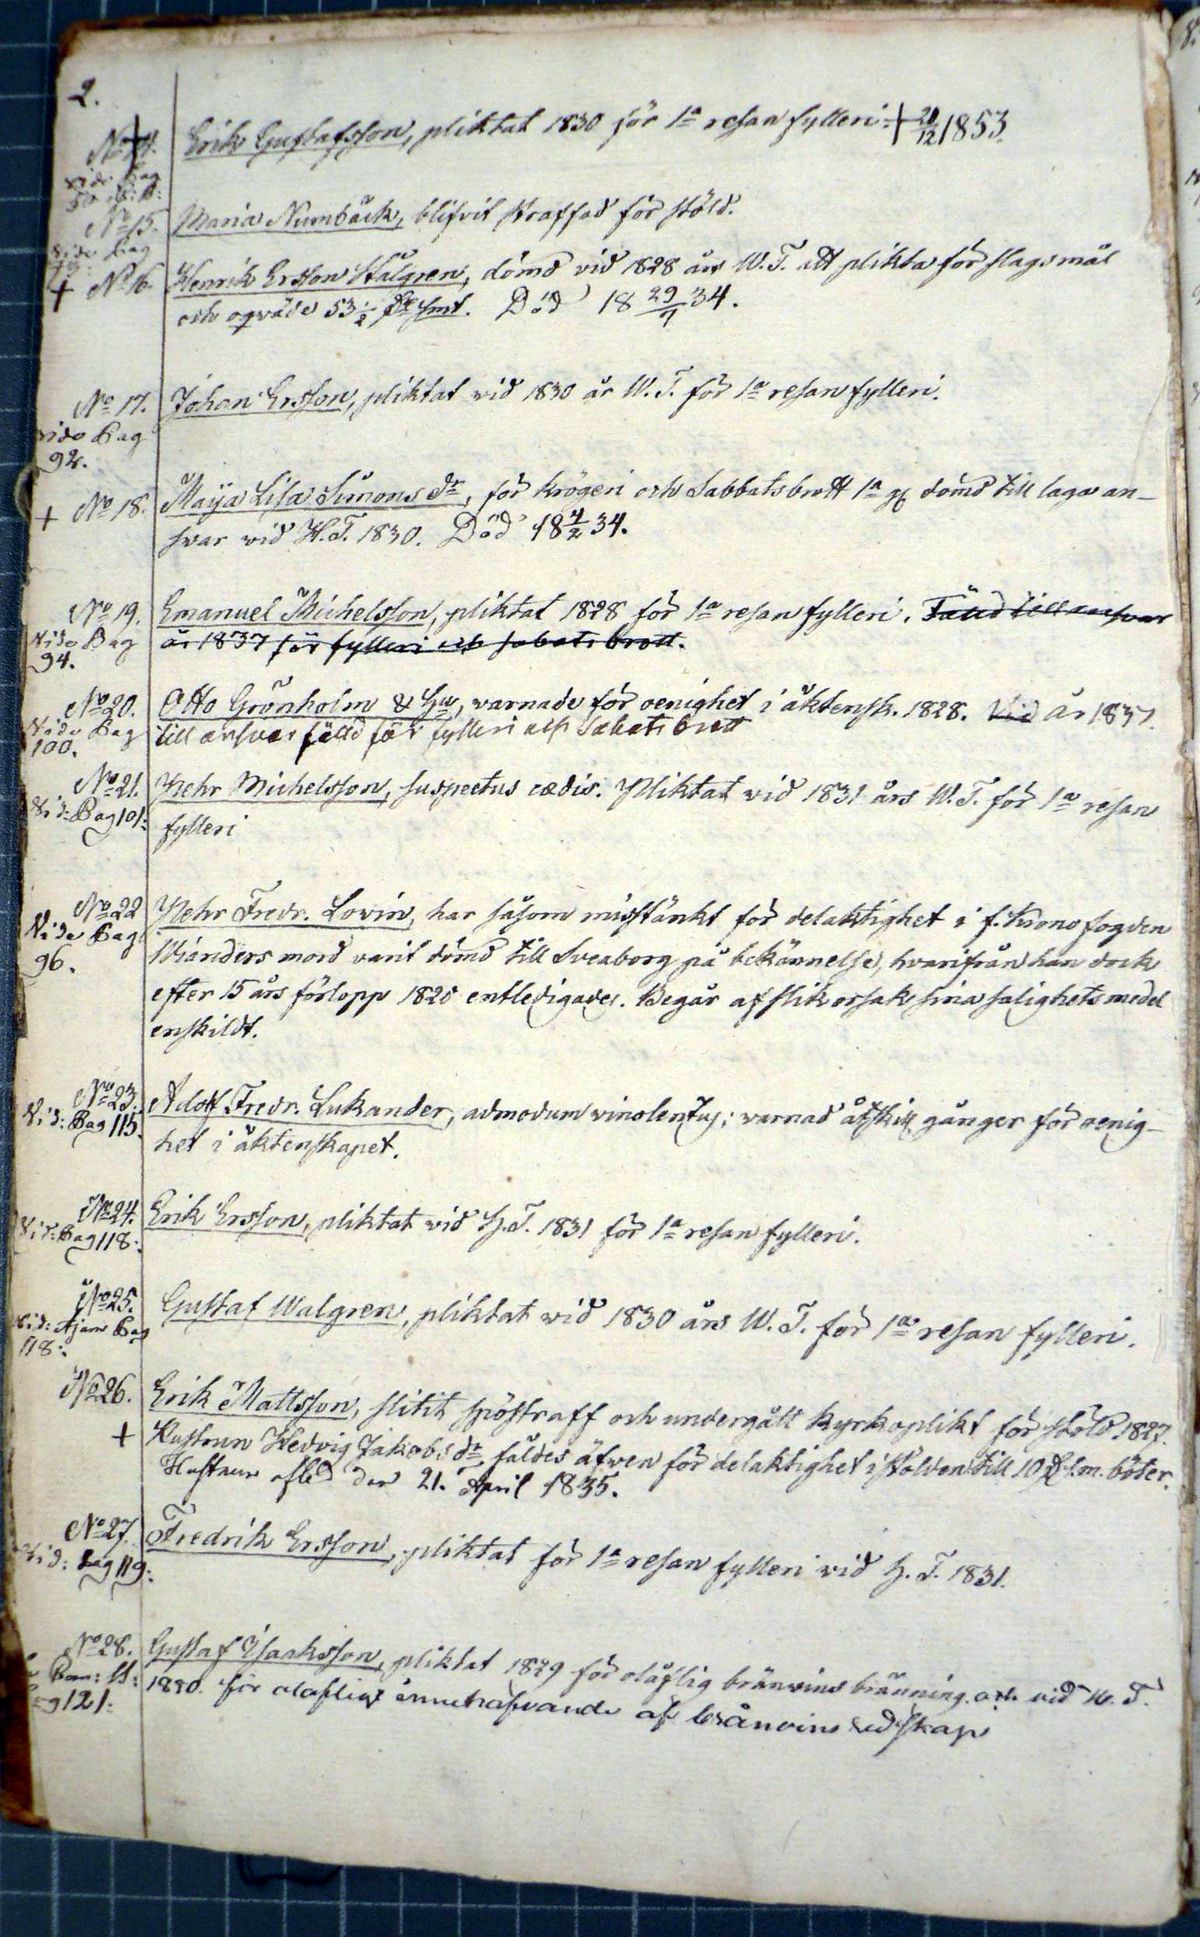 2.
No 14. Erik Gustafsson, pliktat 1830 för 1a resan fylleri. + 20/12 1853.
vide Pag
No 15. Maria Numbäck, blifvit straffad för stöld.
vide Pag
+ No 16. Henrik Ersson Stålgren, dömd vid 1828 års W.T. att plikta för slagsmål
och oqväde 53 1/2 Smt. Död 18 29/7 34.
No 17. Johan Ersson, pliktat vid 1830 år W.T. för 1a resan fylleri.
vide Pag
92.
+ No 18. Maija Lisa Simons dr, för krögeri och Sabbatsbrott 1a g dömd till laga an-
svar vid H.T. 1830. Död 18 4/2 34.
No 19. Emanuel Michelsson, pliktat 1828 för 1a resan fylleri. Fälld till ansvar
Vide Pag år 1837 för fylleri och sabatsbrott.
94.
No 20. Otto Grönholm & Hu, varnade för oenighet i äktensk. 1828. Vid år 1837
Vide Pag till ansvar fälld för fylleri och Sabatsbrott
100.
No 21. Pehr Michelsson, suspectus cædis. Pliktat vid 1831 års W.T. för 1a resan
Vid: Pag 101: fylleri
No 22 Pehr Fredr. Lovin, har såsom misstänkt för delaktighet i f. Kronofogden
Vide Pag Wianders mord varit dömd till Sveaborg på bekännelse, hvarifrån han dock
96. efter 15 års förlopp 1820 entledigades. Begår af slik orsak sina salighetsmedel
enskildt.
No 23. Adolf Fredr. Lukander, admodum vinolentus; varnad åtskill. gånger för oenig-
Vid: Pag 115. het i äktenskapet.
No 24. Erik Ersson, pliktat vid H.T. 1831 för 1a resan fylleri.
Vid: Pag 118:
No 25. Gustaf Walgren, pliktat vid 1830 års W.T. för 1a resan fylleri.
Vid: Pag
118:
No 26. Erik Mattsson, slitit spöstraff och undergått kyrkoplikt för stöld 1827.
+ Hustrun Hedvig Jakobs dr fäldes äfven för delaktighet i stölden till 10 s.m. böter.
Hustrun afled den 21. April 1835.
No 27. Fredrik Ersson, pliktat för 1a resan fylleri vid H.T. 1831.
Vid: Pag 119:
No 28. Gustaf Isaksson, pliktat 1829 för olaflig bränvins bränning. och vid W.T.
1830. för olaflig innehafvande af bränvins redskap
121: